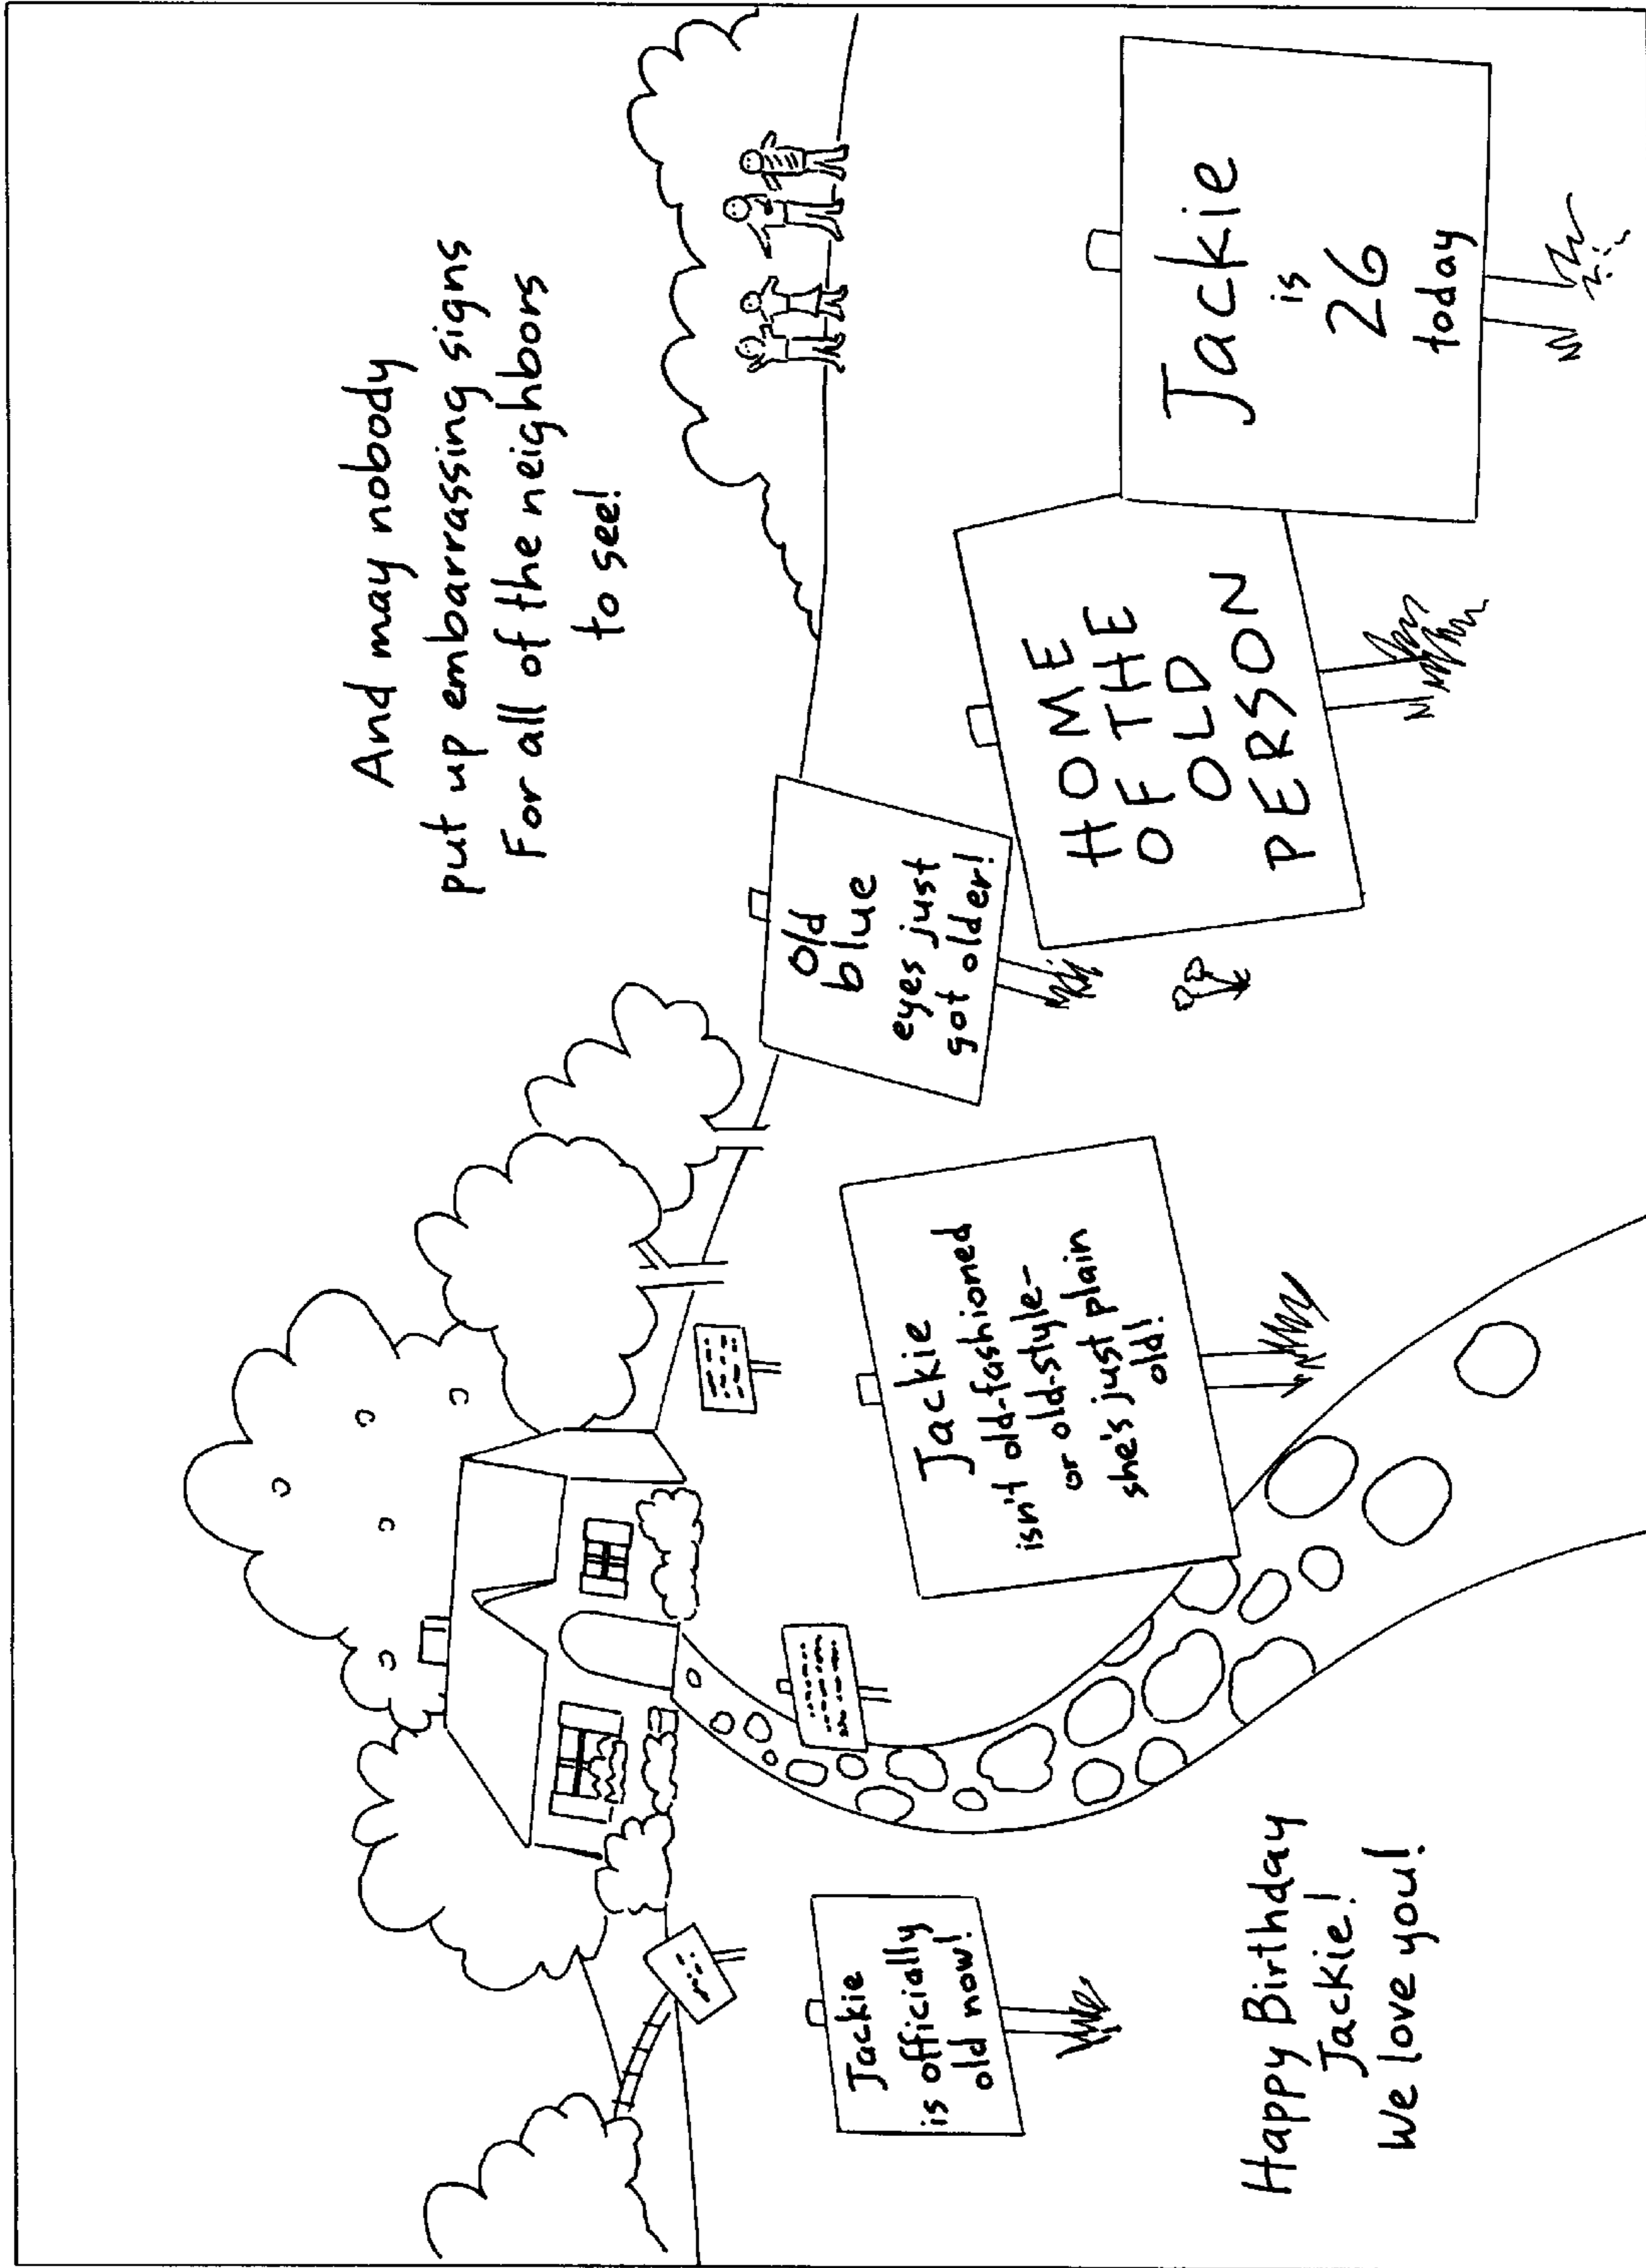 And may nobody
put up embarrassing signs
For all of the neighbors
to see!
Jackie
is officially
old now!
Jackie
isn't old-fashioned
or old-style-
she's just plain
old!
old
blue
eyes just
got older!
HOME
OF THE
OLD
PERSON
Jackie
is
26
today
Happy Birthday
Jackie!
We love you!